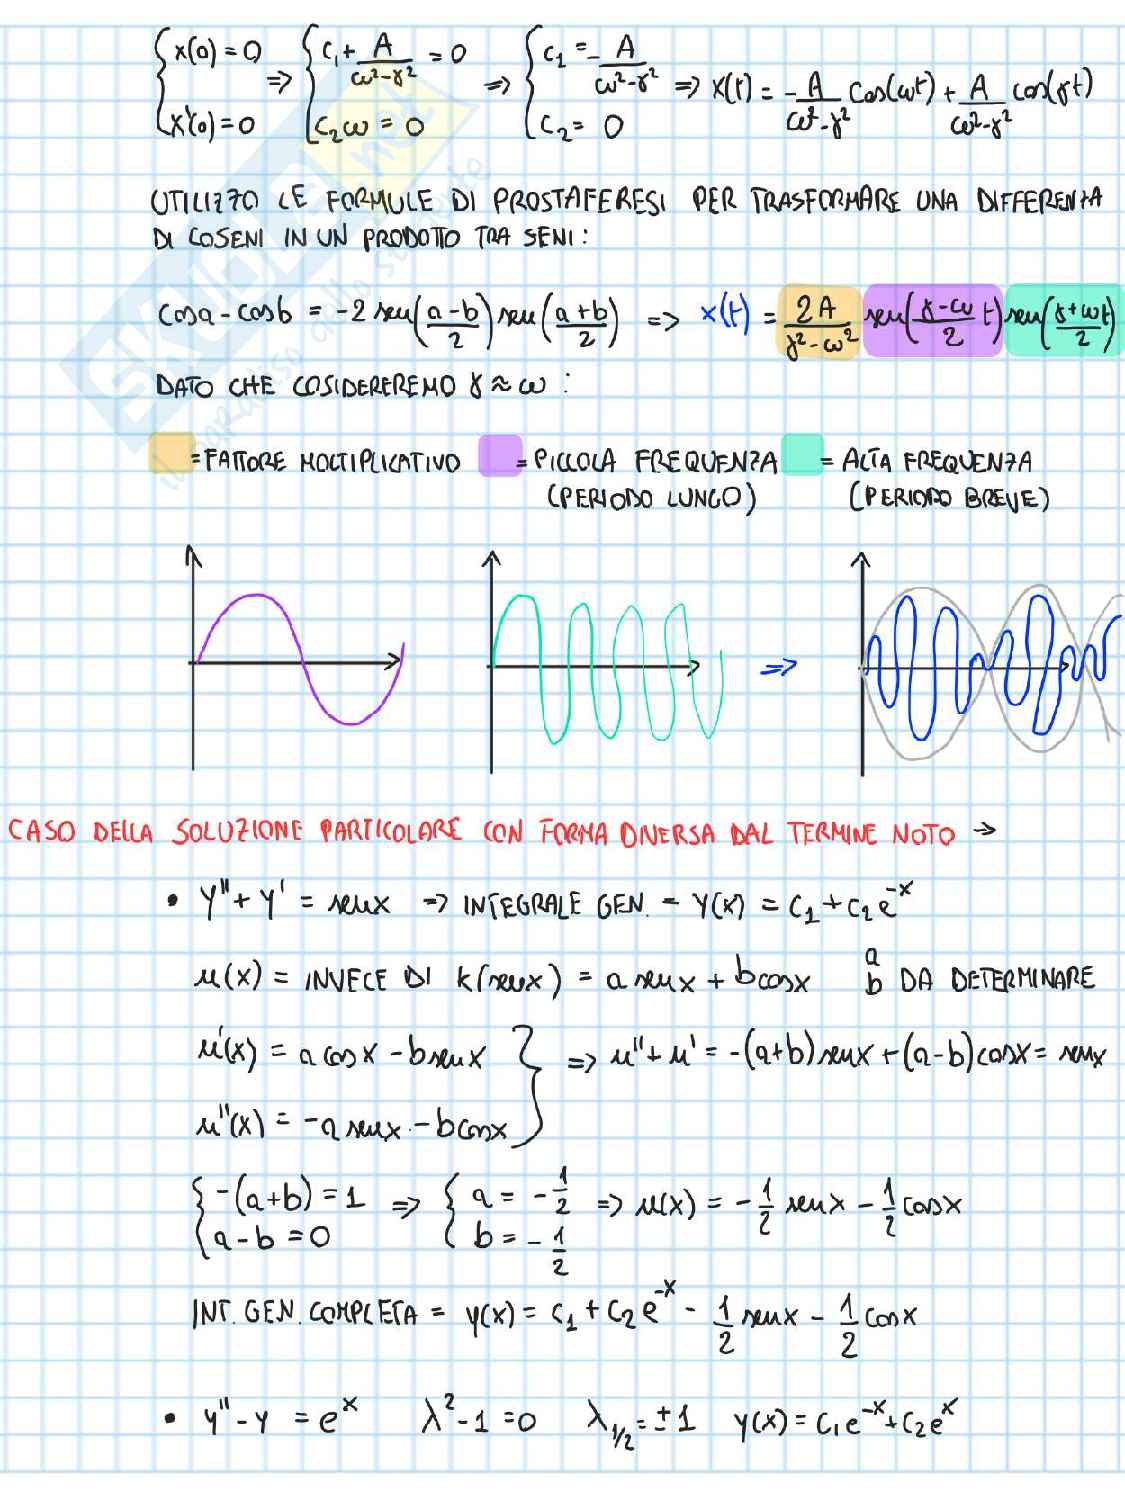 {x(0) = 0 => {c₁ + A/(ω²-γ²) = 0 => {c₁ = -A/(ω²-γ²) => x(t) = -A/(ω²-γ²) cos(ωt) + A/(ω²-γ²) cos(γt)
{x'(0) = 0 {c₂ω = 0 {c₂ = 0
UTILIZZO LE FORMULE DI PROSTAFERESI PER TRASFORMARE UNA DIFFERENZA
DI COSENI IN UN PRODOTTO TRA SENI:
cosa - cosb = -2 sen((a-b)/2) sen((a+b)/2) => x(t) = 2A/(γ²-ω²) sen((γ-ω)/2 t) sen((γ+ωt)/2)
DATO CHE COSIDEREREMO γ ≈ ω :
= FATTORE MOLTIPLICATIVO = PICCOLA FREQUENZA = ALTA FREQUENZA
(PERIODO LUNGO) (PERIODO BREVE)
=>
CASO DELLA SOLUZIONE PARTICOLARE CON FORMA DIVERSA DAL TERMINE NOTO →
• y'' + y' = senx => INTEGRALE GEN. - y(x) = c₁ + c₂e^-x
u(x) = INVECE DI k(senx) = a senx + b cosx a b DA DETERMINARE
u'(x) = a cosx - b senx } => u'' + u' = -(a+b) senx + (a-b) cosx = senx
u''(x) = -a senx - b cosx
{-(a+b) = 1 => {a = -1/2 => u(x) = -1/2 senx - 1/2 cosx
{a - b = 0 {b = -1/2
INT. GEN. COMPLETA = y(x) = c₁ + c₂e^-x - 1/2 senx - 1/2 cosx
• y'' - y = e^x λ² - 1 = 0 λ₁/₂ = ±1 y(x) = c₁e^-x + c₂e^x
SKUOLA.net
il paradiso dello studente